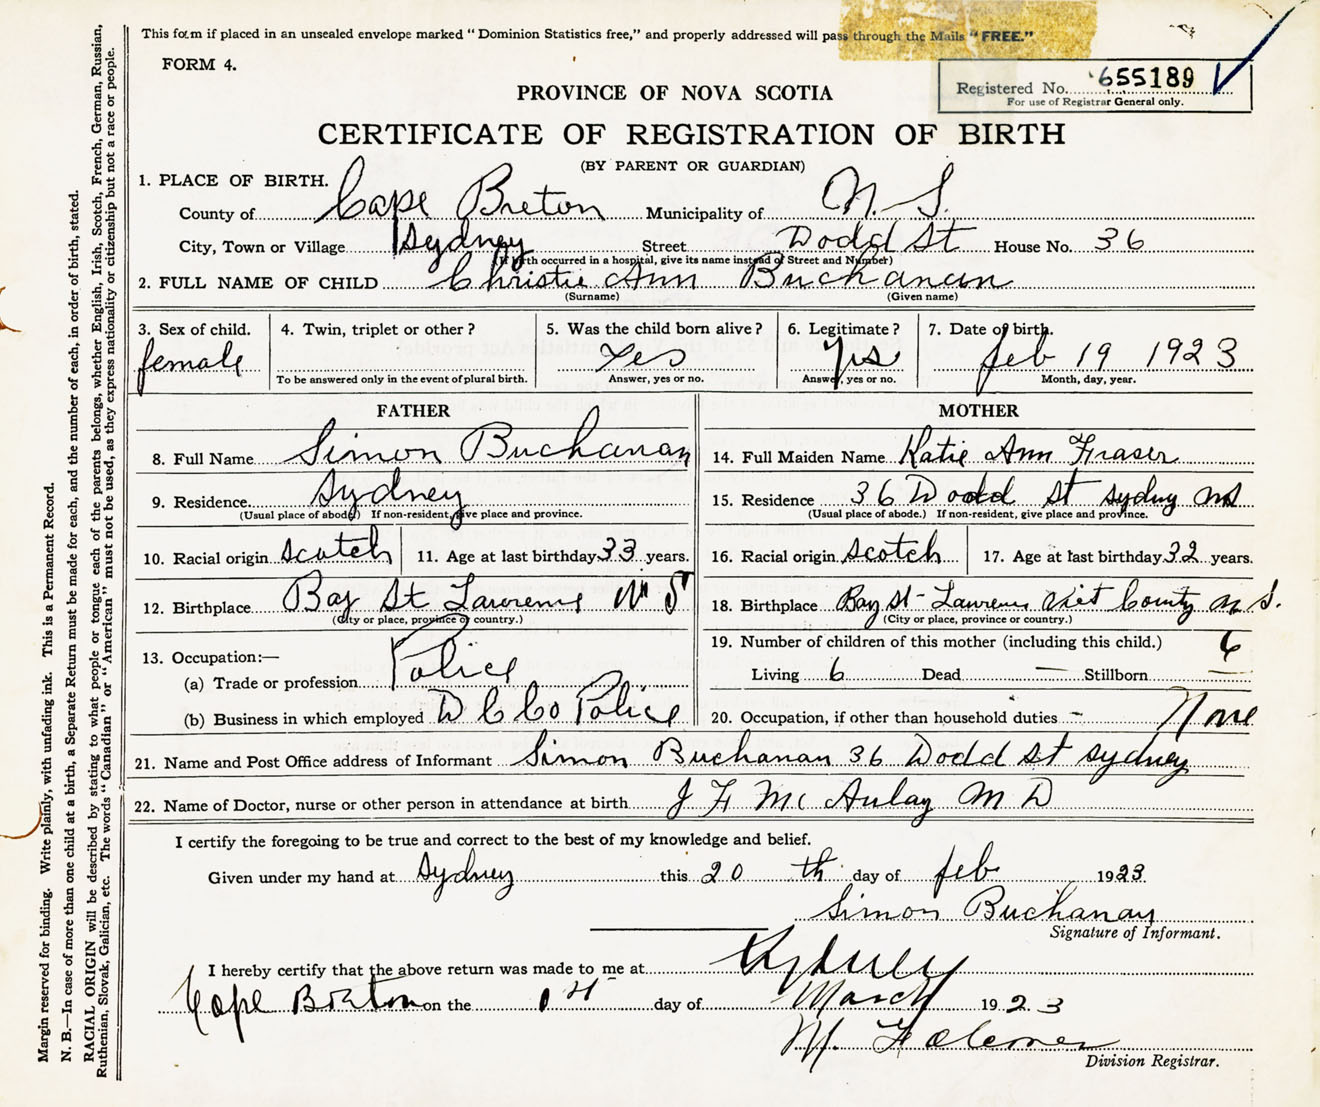 This form if placed in an unsealed envelope marked “Dominion Statistics free,” and properly addressed will pass through the Mails “FREE.”
FORM 4.
Registered No. 655189
For use of Registrar General only.
PROVINCE OF NOVA SCOTIA
CERTIFICATE OF REGISTRATION OF BIRTH
(BY PARENT OR GUARDIAN)
1. PLACE OF BIRTH.
County of Cape Breton Municipality of N. S.
City, Town or Village Sydney Street Dodd St House No. 36
(If birth occurred in a hospital, give its name instead of Street and Number)
2. FULL NAME OF CHILD Christie Ann Buchanan
(Surname) (Given name)
3. Sex of child. 4. Twin, triplet or other? 5. Was the child born alive? 6. Legitimate? 7. Date of birth.
female Yes yes feb 19 1923
To be answered only in the event of plural birth. Answer, yes or no. Answer, yes or no. Month, day, year.
FATHER MOTHER
8. Full Name Simon Buchanan 14. Full Maiden Name Katie Ann Fraser
9. Residence Sydney 15. Residence 36 Dodd St Sydney NS
(Usual place of abode.) If non-resident, give place and province. (Usual place of abode.) If non-resident, give place and province.
10. Racial origin scotch 11. Age at last birthday 33 years. 16. Racial origin scotch 17. Age at last birthday 32 years.
12. Birthplace Bay St Lawrence N S 18. Birthplace Bay St - Lawrence Vict County N S.
(City or place, province or country.) (City or place, province or country.)
13. Occupation:— 19. Number of children of this mother (including this child.) 6
(a) Trade or profession Police Living 6 Dead — Stillborn —
(b) Business in which employed D C Co Police 20. Occupation, if other than household duties - None
21. Name and Post Office address of Informant Simon Buchanan 36 Dodd St Sydney
22. Name of Doctor, nurse or other person in attendance at birth J F Mc Aulay M D
I certify the foregoing to be true and correct to the best of my knowledge and belief.
Given under my hand at Sydney this 20 th day of feb 1923
Simon Buchanan
Signature of Informant.
I hereby certify that the above return was made to me at Sydney
Cape Breton on the 1st day of March 1923
M. F
Division Registrar.
Margin reserved for binding. Write plainly, with unfading ink. This is a Permanent Record.
N. B.—In case of more than one child at a birth, a Separate Return must be made for each, and the number of each, in order of birth, stated.
RACIAL ORIGIN will be described by stating to what people or tongue each of the parents belongs, whether English, Irish, Scotch, French, German, Russian,
Ruthenian, Slovak, Galician, etc. The words “Canadian” or “American” must not be used, as they express nationality or citizenship but not a race or people.